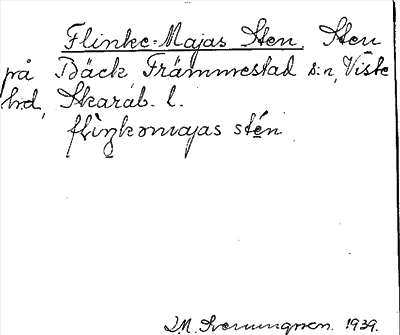 Flinke-Majas Sten, Sten
på Bäck Främmestad s:n, Viste
hd, Skarab. l.
flìŋkəmajas stén
I.M. Svenungsson. 1939.